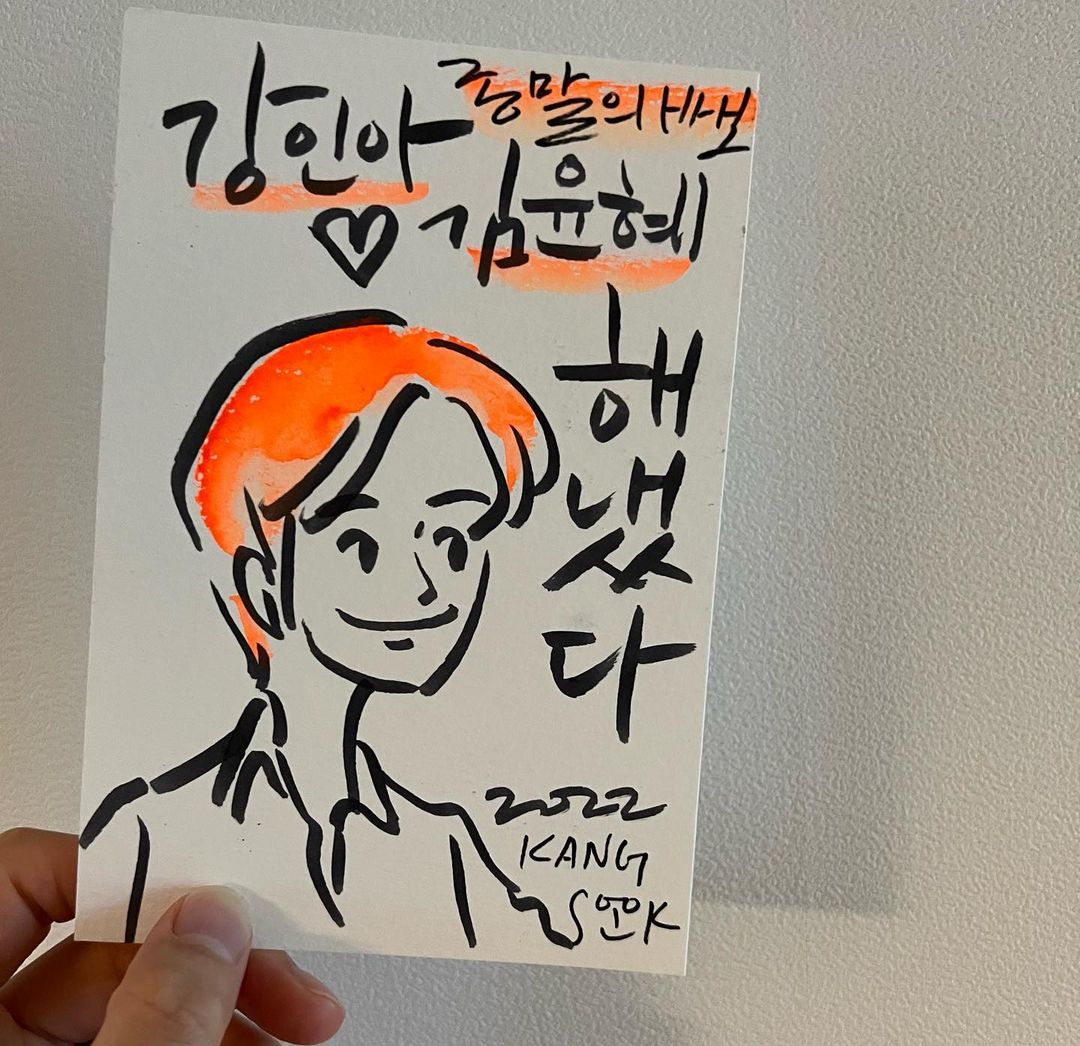 강인아
종말의 바보
♡ 김윤혜
해
냈
다
2022
KANG